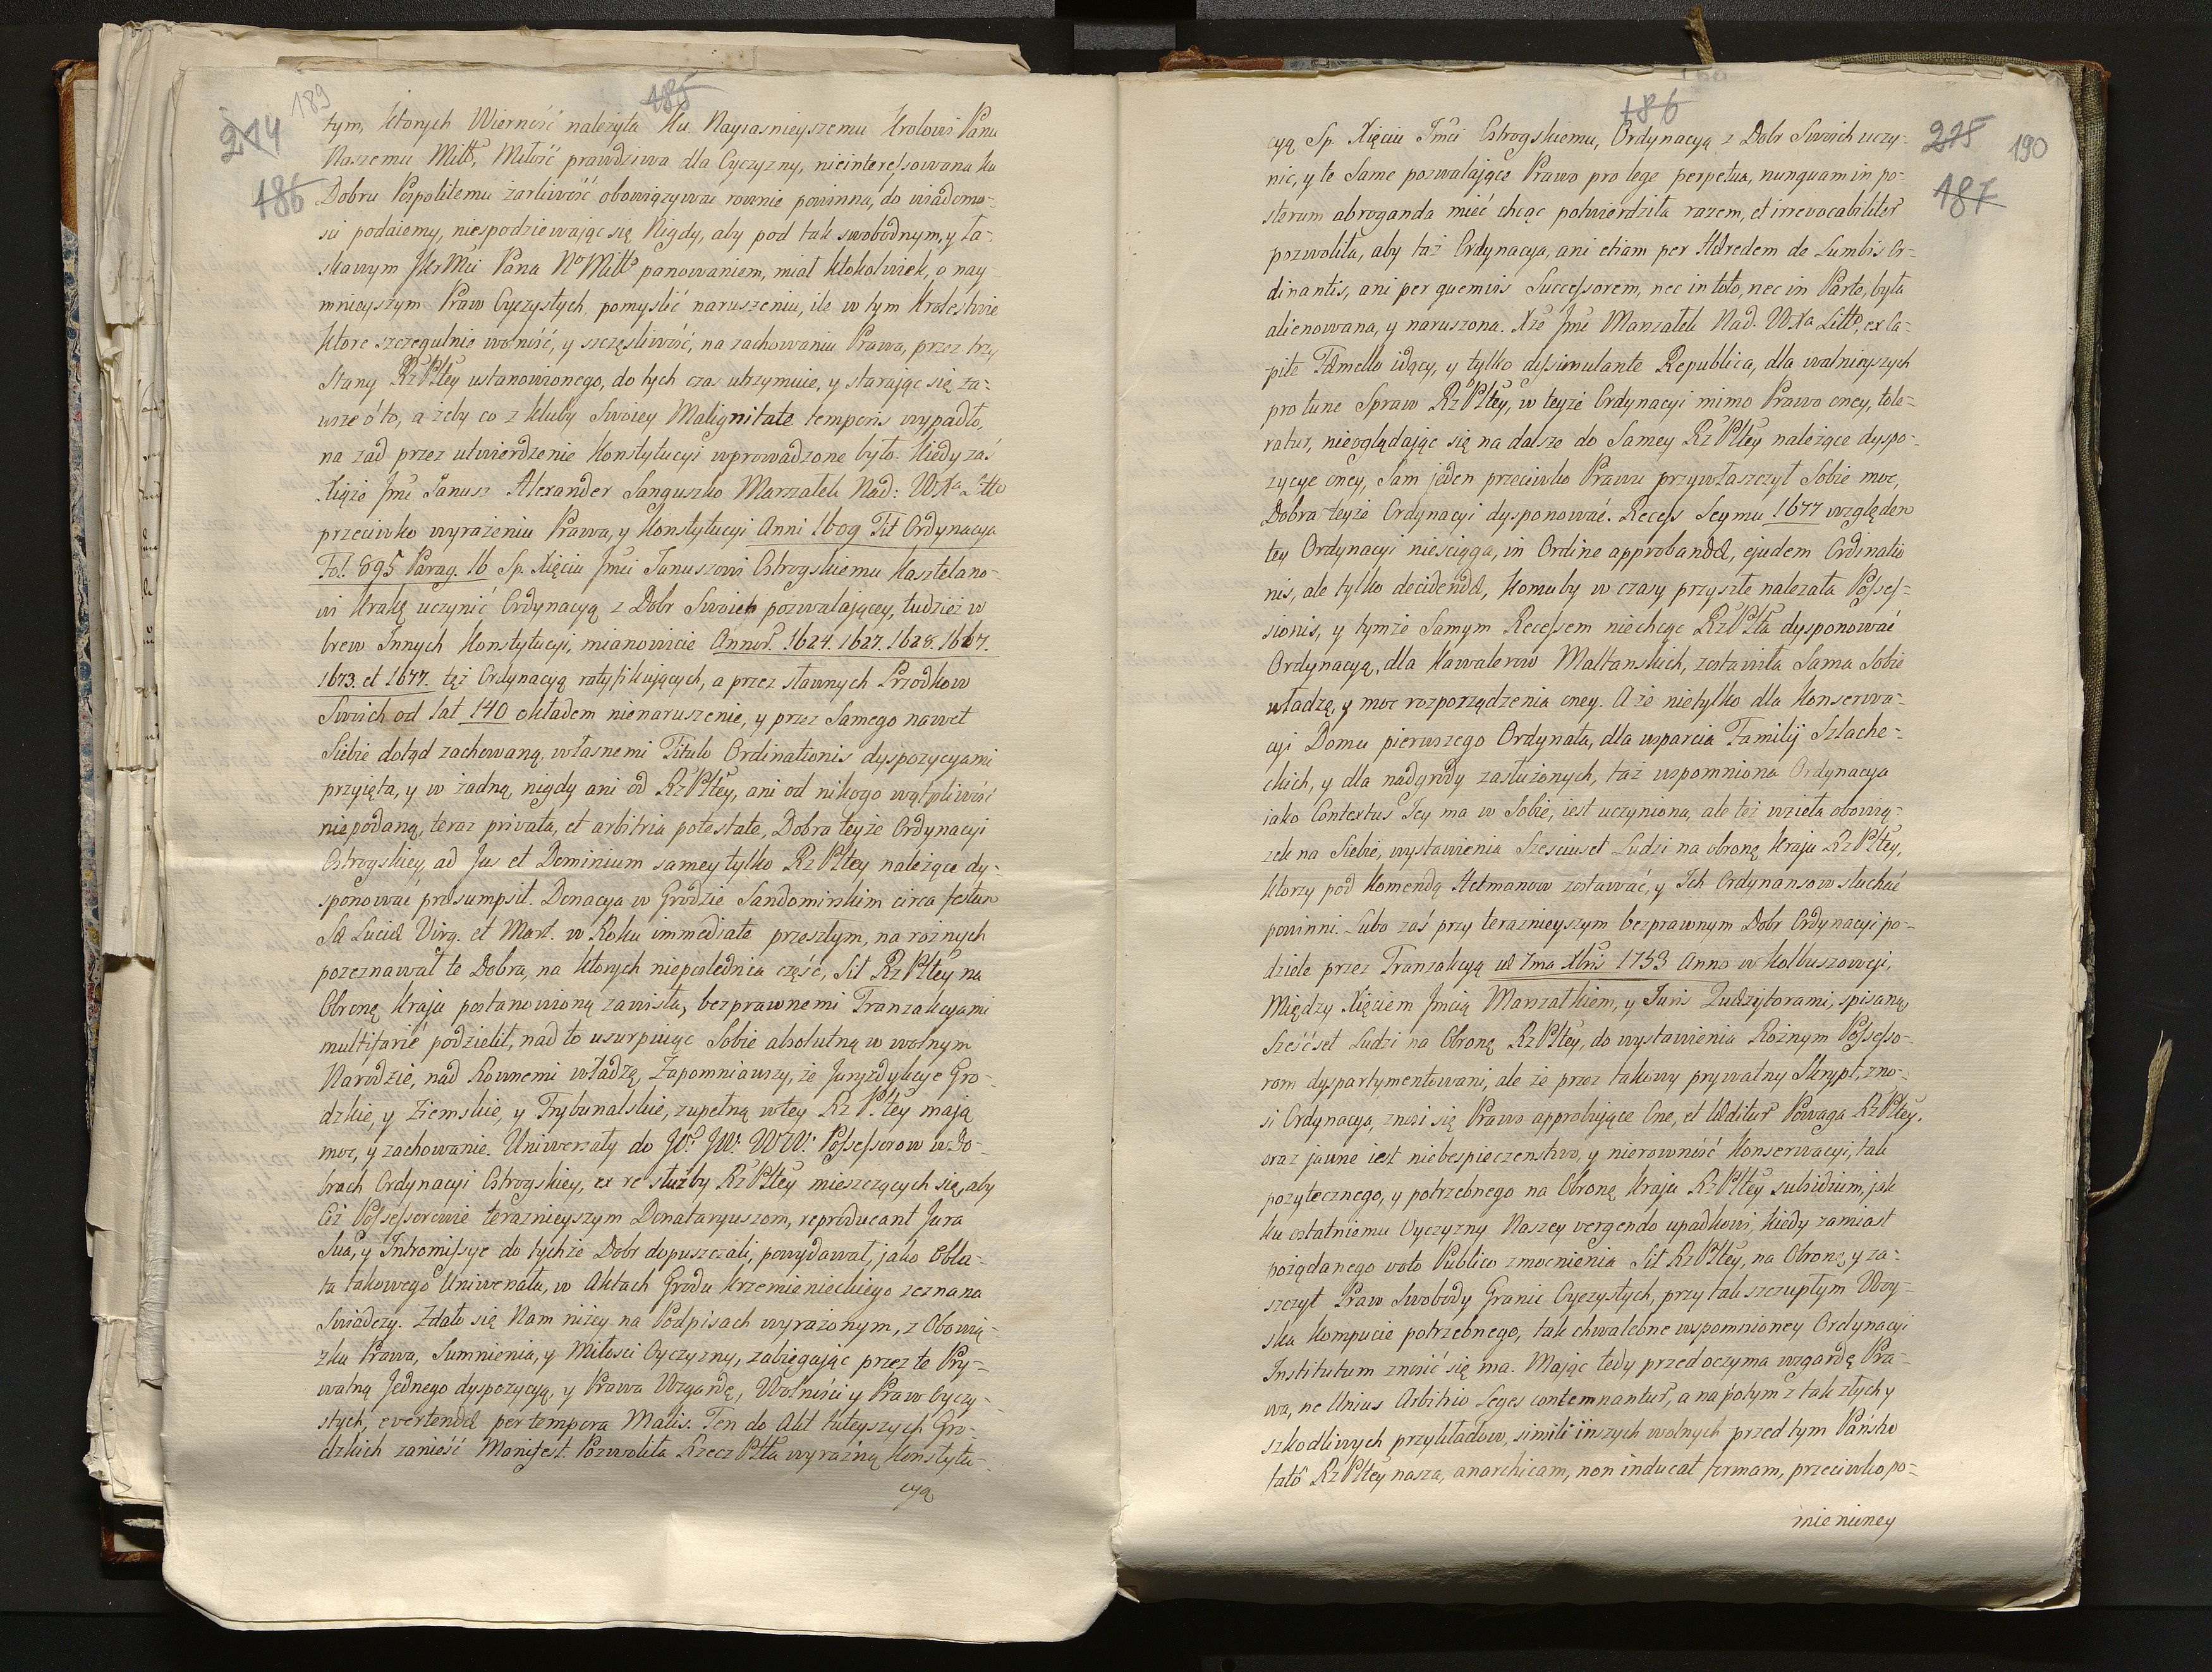 189
185
214
186
tym, ktorych Wierność należyta Ku Nayiasnieyszemu Krolowi Panu
Naszemu Miłł, Miłość prawdziwa dla Oyczyzny, nieinteressowana ku
Dobru Pospolitemu żarliwość obowiązywać rownie powinna, do wiadomo-
sci podaiemy, niespodziewając się Nigdy, aby pod tak swobodnym, y ła-
skawym JKrMci Pana No Miłło panowaniem, miał ktokolwiek, o nay-
mnieyszym Praw Oyczystych pomyslić naruszeniu, ile w tym Krolestwie
Ktore szczegulnie wolność, y szczęsliwość, na zachowaniu Prawa, przez trzy
Stany RzPltey ustanowionego, do tych czas utrzymuie, y starając się za-
wsze o to, ażeby co z kluby Swoiey Malignitate temporis wypadło,
na zad przez utwierdzenie Konstytucyi wprowadzone było. Kiedy zaś
Xiąże Jmć Janusz Alexander Sanguszko Marszałek Nad: WXa Litto
przeciwko wyrażeniu Prawa, y Konstytucyi Anni 1609 Tit Ordynacya
Fol. 695 Parag. 16 Sp. Xięciu Jmci Januszowi Ostrogskiemu Kasztelano-
wi Krakę uczynić Ordynacyą z Dobr Swoich pozwalającey, tudzież w
brew Innych Konstytucyi, mianowicie Annor 1624. 1627. 1628. 1667.
1673. et 1677. tęż Ordynacyą ratyfikujących, a przez sławnych Przodkow
Swoich od lat 140 okładem nienaruszenie, y przez Samego nawet
Siebie dotąd zachowaną, własnemi Titulo Ordinationis dyspozycyami
przyięta, y w żadną nigdy ani od RzPltey, ani od nikogo wątpliwość
niepodaną, teraz privata, et arbitria potestate, Dobra teyże Ordynacyi
Ostrogskiey, ad Jus et Dominium samey tylko RzPltey należące dy-
sponować præsumpsit. Donacya w Grodzie Sandomirskim circa festum
Sæ Luciæ Virg. et Mart. w Roku immediate przeszłym, na rożnych
pozeznawał te Dobra, na ktorych nieposlednia część, Sił RzPltey na
Obronę Kraju postanowioną zawisła, bezprawnemi Tranzakcyami
multifarié podzielił, nad to usurpując Sobie absolutną w wolnym
Narodzie, nad Rownemi władzę, Zapomniawszy, że Juryzdykcye Gro-
dzkie, y Ziemskie, y Trybunalskie, zupełną w tey RzPltey mają
moc, y zachowanie. Uniwersały do JW. JW. WW. Possessorow w Do-
brach Ordynacyi Ostrogskiey, ex re służby RzPltey mieszczących się, aby
Ciż Possessorowie teraznieyszym Donataryuszom, reproducant Jura
Sua, y Intromissye do tychże Dobr dopuszczali, powydawał, jako Obla-
ta takowego Uniwersału, w Aktach Grodu Krzemienieckiego zeznana
Swiadczy. Zdało się Nam niżey na Podpisach wyrażonym, z Obowią-
zku Prawa, Sumnienia, y Miłosci Oyczyzny, zabiegając przez te Pry-
watną Jednego dyspozycyą, y Prawa Wzgardę, Wolności y Praw Oyczy-
stych, evertendæ per tempora Malis. Ten do Akt tuteyszych Gro-
dzkich zanieść Manifest. Pozwoliła Rzecz Plta wyrazną Konstytu-
cyą
186
215
190
187
cyą Sp. Xięciu Jmci Ostrogskiemu, Ordynacyą z Dobr Swoich uczy-
nić, y te Same pozwalające Prawo pro lege perpetua, nunquam in po-
sterum abroganda mieć chcąc potwierdziła razem, et irrevocabiliter
pozwoliła, aby taż Ordynacya, ani etiam per Hæredem de Lumbis Or-
dinantis, ani per quemvis Successorem, nec in toto, nec in Parte, była
alienowana, y naruszona. Xże Jmć Marszałek Nad. WXa Litto, ex Ca-
pite Fæmello idący, y tylko dissimulante Republica, dla walnieyszych
pro tunc Spraw RzPltey, w teyże Ordynacyi mimo Prawo oney, tole-
ratur, nieoglądając się na dalsze do Samey RzPltey należące dyspo-
zycye oney, Sam jeden przeciwko Prawu przywłaszczył Sobie moc,
Dobra teyże Ordynacyi dysponować. Recess Seymu 1677 względem
tey Ordynacyi niesciąga, in Ordine approbandæ, ejudem Ordinatio
nis, ale tylko decidendæ, Komuby w czasy przyszłe należała Posses-
sionis, y tymże Samym Recessem niechcąc RzPlta dysponować
Ordynacyą, dla Kawalerow Maltanskich, zostawiła Sama Sobie
władzę, y moc rozporządzenia oney. A że nietylko dla Konserwa-
cyi Domu pierwszego Ordynata, dla wsparcia Familij Szlache-
ckich, y dla nadgrody zasłużonych, taż wspomniona Ordynacya
iako Contextus Jey ma w Sobie, iest uczyniona, ale też wzieła obowią-
zek na Siebie, wystawienia Szesciuset Ludzi na obronę Kraju RzPltey,
ktorzy pod Komendą Hetmanow zostawać, y Ich Ordynansow słuchać
powinni. Lubo zaś przy teraznieyszym bezprawnym Dobr Ordynacyi po-
dziele przez Tranzakcyą die 7ma Xbris 1753 Anno w Kolbuszowej,
Między Xięciem Jmcią Marszałkiem, y Juris Quæzytorami, spisaną
Sześćset Ludzi na Obronę RzPltey, do wystawienia Rożnym Possesso-
rom dyspartymentowani, ale że przez takowy prywatny Skrypt, zno-
si Ordynacya, znosi się Prawo approbujące One, et læditur Powaga RzPltey.
oraz jawne iest niebespieczenstwo, y nierowność Konserwacyi, tak
pożytecznego, y potrzebnego na Obronę Kraju RzPltey subsidium, jak
ku ostatniemu Oyczyzny Naszey vergendo upadkowi, kiedy zamiast
pożądanego voto Publico zmocnienia Sił RzPltey, na Obronę, y za-
szczyt Praw Swobody Granic Oyczystych, przy tak szczupłym Woy-
ska Kompucie potrzebnego, tak chwalebne wspomnioney Ordynacyi
Institutum znosić się ma. Mając tedy przed oczyma wzgardę Pra-
wa, ne Unius Arbitrio Leges contemnantur, a na potym z tak złych y
szkodliwych przykładow, simili inszych wolnych przed tym Pańsko
tatô RzPltey nasza, anarchicam, non inducat formam, przeciwko po-
mienioney